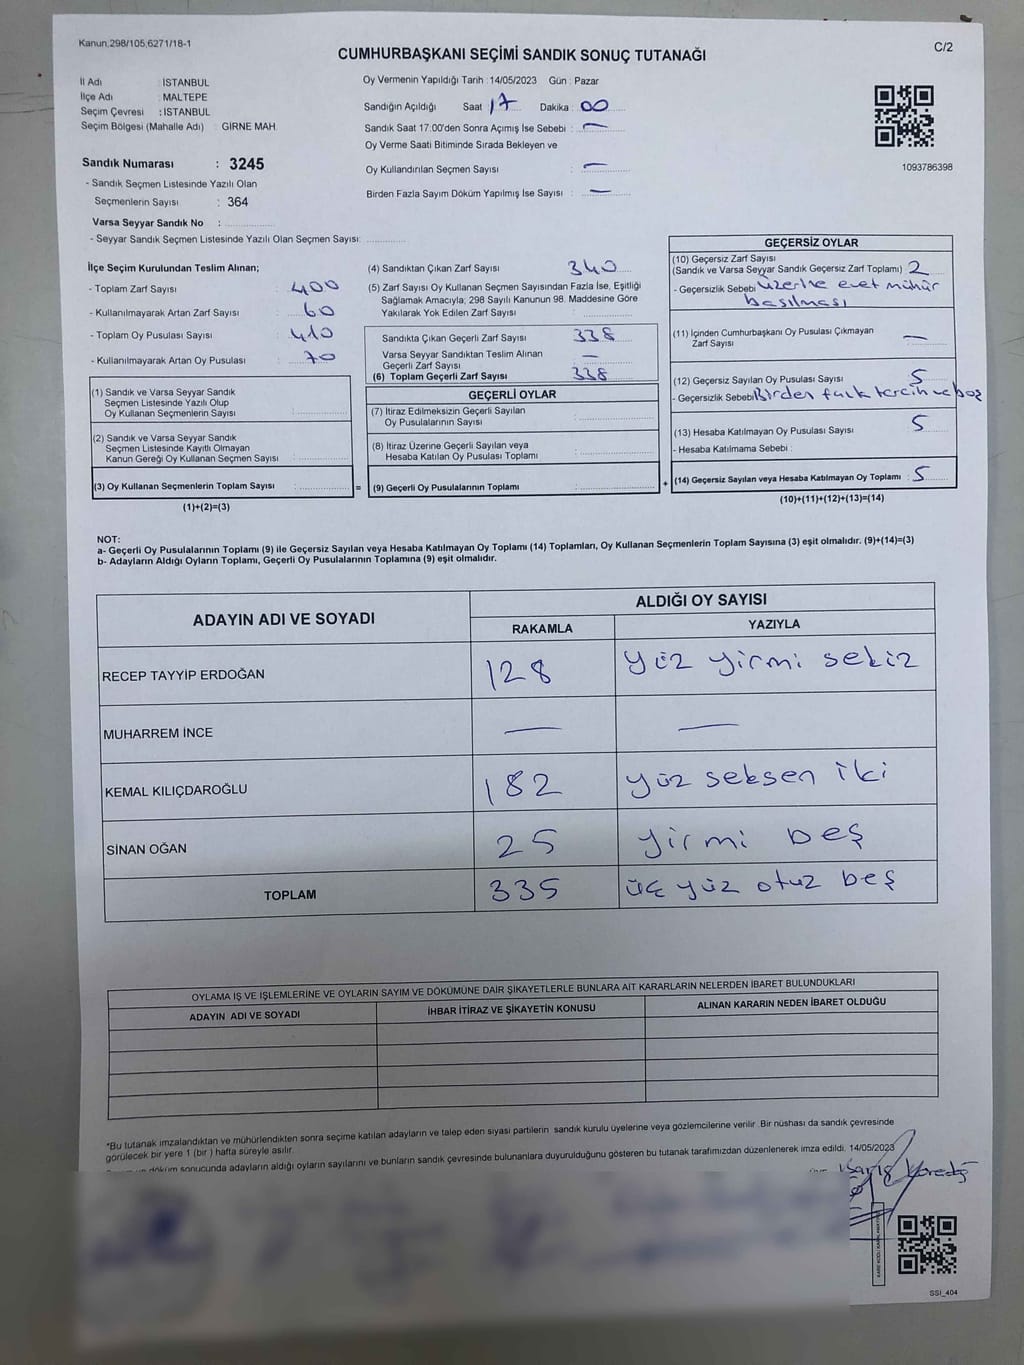 Kanun,298/105,6271/18-1
C/2
CUMHURBAŞKANI SEÇİMİ SANDIK SONUÇ TUTANAĞI
İl Adı : İSTANBUL
İlçe Adı : MALTEPE
Seçim Çevresi : İSTANBUL
Seçim Bölgesi (Mahalle Adı) : GİRNE MAH.
Sandık Numarası : 3245
- Sandık Seçmen Listesinde Yazılı Olan
Seçmenlerin Sayısı : 364
Varsa Seyyar Sandık No :
- Seyyar Sandık Seçmen Listesinde Yazılı Olan Seçmen Sayısı:
Oy Vermenin Yapıldığı Tarih : 14/05/2023 Gün : Pazar
Sandığın Açıldığı Saat 17 Dakika : 00
Sandık Saat 17:00'den Sonra Açımış İse Sebebi : —
Oy Verme Saati Bitiminde Sırada Bekleyen ve
Oy Kullandırılan Seçmen Sayısı : —
Birden Fazla Sayım Döküm Yapılmış İse Sayısı : —
1093786398
İlçe Seçim Kurulundan Teslim Alınan;
- Toplam Zarf Sayısı : 400
- Kullanılmayarak Artan Zarf Sayısı : 60
- Toplam Oy Pusulası Sayısı : 410
- Kullanılmayarak Artan Oy Pusulası : 70
(1) Sandık ve Varsa Seyyar Sandık
Seçmen Listesinde Yazılı Olup
Oy Kullanan Seçmenlerin Sayısı :
(2) Sandık ve Varsa Seyyar Sandık
Seçmen Listesinde Kayıtlı Olmayan
Kanun Gereği Oy Kullanan Seçmen Sayısı :
(3) Oy Kullanan Seçmenlerin Toplam Sayısı : =
(1)+(2)=(3)
(4) Sandıktan Çıkan Zarf Sayısı : 340
(5) Zarf Sayısı Oy Kullanan Seçmen Sayısından Fazla İse, Eşitliği
Sağlamak Amacıyla; 298 Sayılı Kanunun 98. Maddesine Göre
Yakılarak Yok Edilen Zarf Sayısı :
Sandıkta Çıkan Geçerli Zarf Sayısı : 338
Varsa Seyyar Sandıktan Teslim Alınan
Geçerli Zarf Sayısı : —
(6) Toplam Geçerli Zarf Sayısı : 338
GEÇERLİ OYLAR
(7) İtiraz Edilmeksizin Geçerli Sayılan
Oy Pusulalarının Sayısı :
(8) İtiraz Üzerine Geçerli Sayılan veya
Hesaba Katılan Oy Pusulası Toplamı :
(9) Geçerli Oy Pusulalarının Toplamı : +
GEÇERSİZ OYLAR
(10) Geçersiz Zarf Sayısı
(Sandık ve Varsa Seyyar Sandık Geçersiz Zarf Toplamı) 2
- Geçersizlik Sebebi üzerine evet mühür
basılması
(11) İçinden Cumhurbaşkanı Oy Pusulası Çıkmayan
Zarf Sayısı : —
(12) Geçersiz Sayılan Oy Pusulası Sayısı : 5
- Geçersizlik Sebebi Birden fazla tercih ve boş
(13) Hesaba Katılmayan Oy Pusulası Sayısı : 5
- Hesaba Katılmama Sebebi :
(14) Geçersiz Sayılan veya Hesaba Katılmayan Oy Toplamı : 5
(10)+(11)+(12)+(13)=(14)
NOT:
a- Geçerli Oy Pusulalarının Toplamı (9) ile Geçersiz Sayılan veya Hesaba Katılmayan Oy Toplamı (14) Toplamları, Oy Kullanan Seçmenlerin Toplam Sayısına (3) eşit olmalıdır. (9)+(14)=(3)
b- Adayların Aldığı Oyların Toplamı, Geçerli Oy Pusulalarının Toplamına (9) eşit olmalıdır.
ADAYIN ADI VE SOYADI
ALDIĞI OY SAYISI
RAKAMLA YAZIYLA
RECEP TAYYİP ERDOĞAN 128 yüz yirmi sekiz
MUHARREM İNCE — —
KEMAL KILIÇDAROĞLU 182 yüz seksen iki
SİNAN OĞAN 25 yirmi beş
TOPLAM 335 üç yüz otuz beş
OYLAMA İŞ VE İŞLEMLERİNE VE OYLARIN SAYIM VE DÖKÜMÜNE DAİR ŞİKAYETLERLE BUNLARA AİT KARARLARIN NELERDEN İBARET BULUNDUKLARI
ADAYIN ADI VE SOYADI İHBAR İTİRAZ VE ŞİKAYETİN KONUSU ALINAN KARARIN NEDEN İBARET OLDUĞU
*Bu tutanak imzalandıktan ve mühürlendikten sonra seçime katılan adayların ve talep eden siyasi partilerin sandık kurulu üyelerine veya gözlemcilerine verilir. Bir nüshası da sandık çevresinde
görülecek bir yere 1 (bir ) hafta süreyle asılır.
döküm sonucunda adayların aldığı oyların sayılarını ve bunların sandık çevresinde bulunanlara duyurulduğunu gösteren bu tutanak tarafımızdan düzenlenerek imza edildi. 14/05/2023
Barış
SSI_404